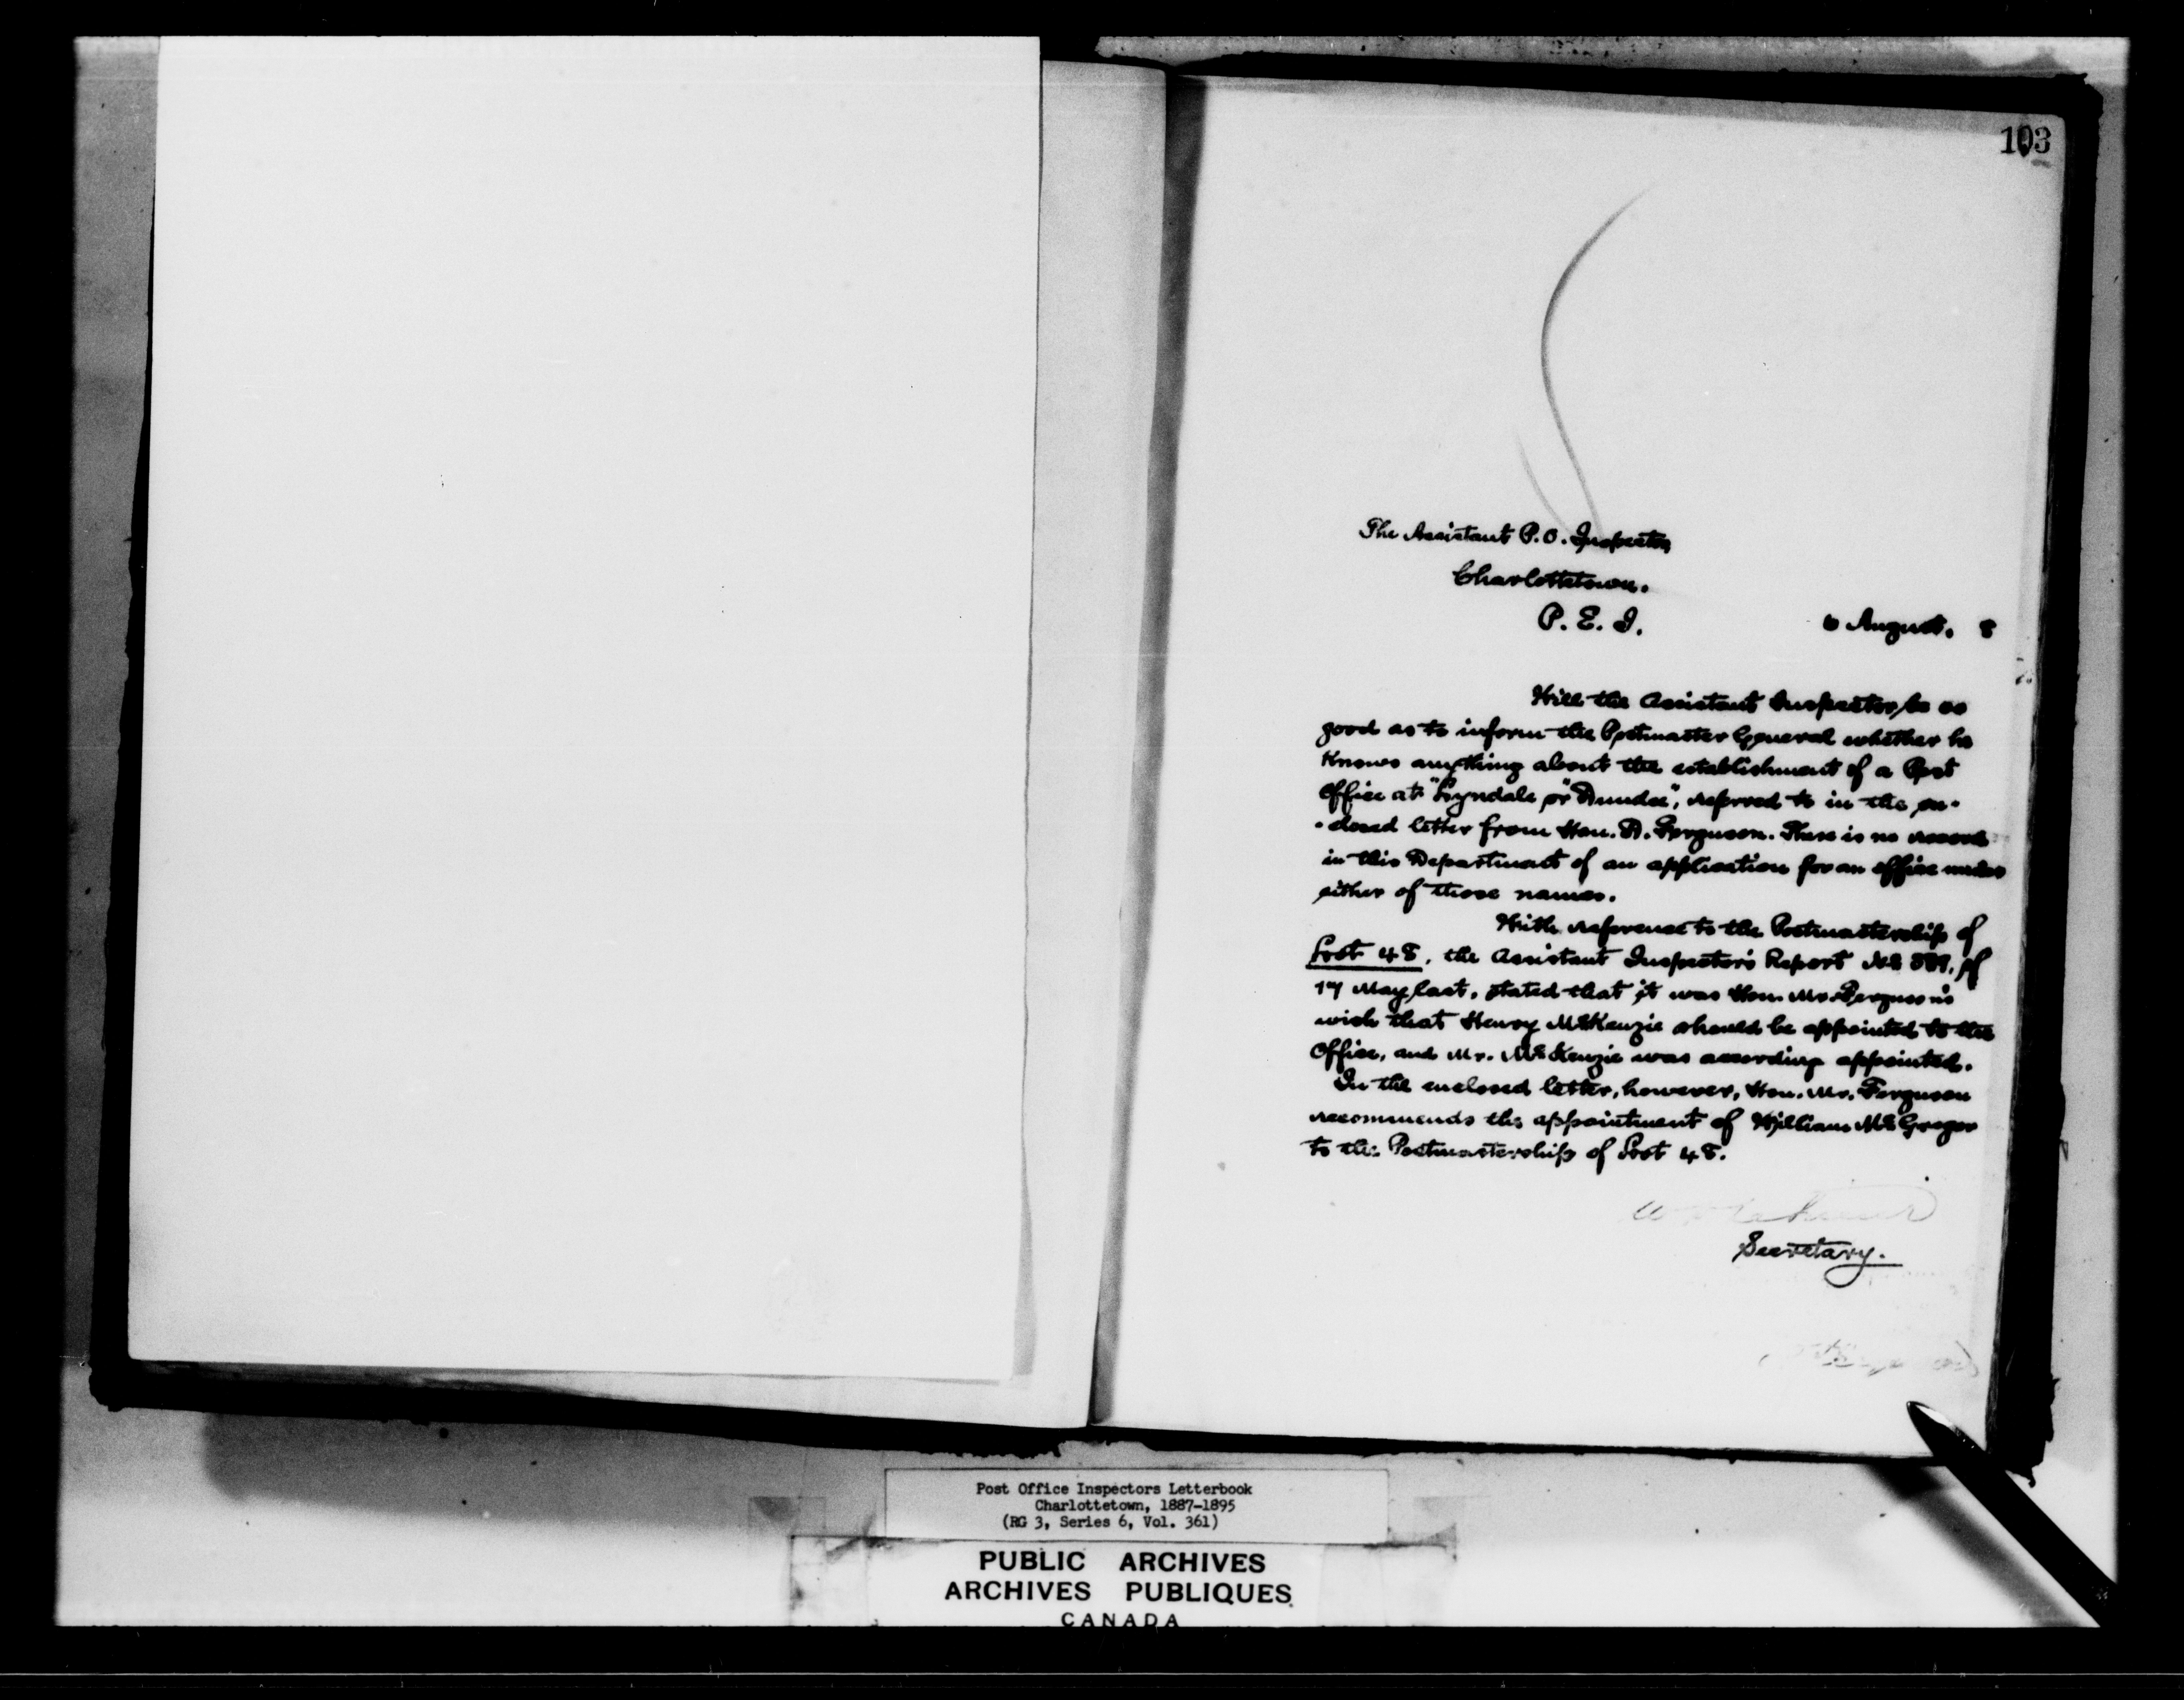 103
The Assistant P.O. Inspector
Charlottetown.
P. E. I.
6 August, 8
Will the Assistant Inspector, be so
good as to inform the Postmaster General whether he
knows anything about the establishment of a Post
Office at "Lyndale" or "Dundee", referred to in the en-
-closed letter from Hon. D. Ferguson. There is no record
in this Department of an application for an office under
either of those names.
With reference to the Postmastership of
Lot 48, the Assistant Inspector's Report No of
17 May last, stated that it was Hon. Mr. Ferguson's
wish that Henry McKenzie should be appointed to the
Office, and Mr. McKenzie was according appointed.
In the enclosed letter, however, Hon. Mr. Ferguson
recommends the appointment of William McGregor
to the Postmastership of Lot 48.
Secretary.
Post Office Inspectors Letterbook
Charlottetown, 1887-1895
(RG 3, Series 6, Vol. 361)
PUBLIC ARCHIVES
ARCHIVES PUBLIQUES
CANADA